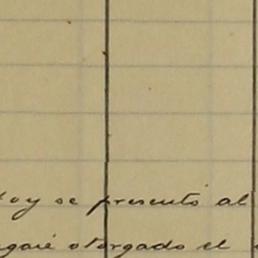 Hoy se presentó al
pagaré otorgado el